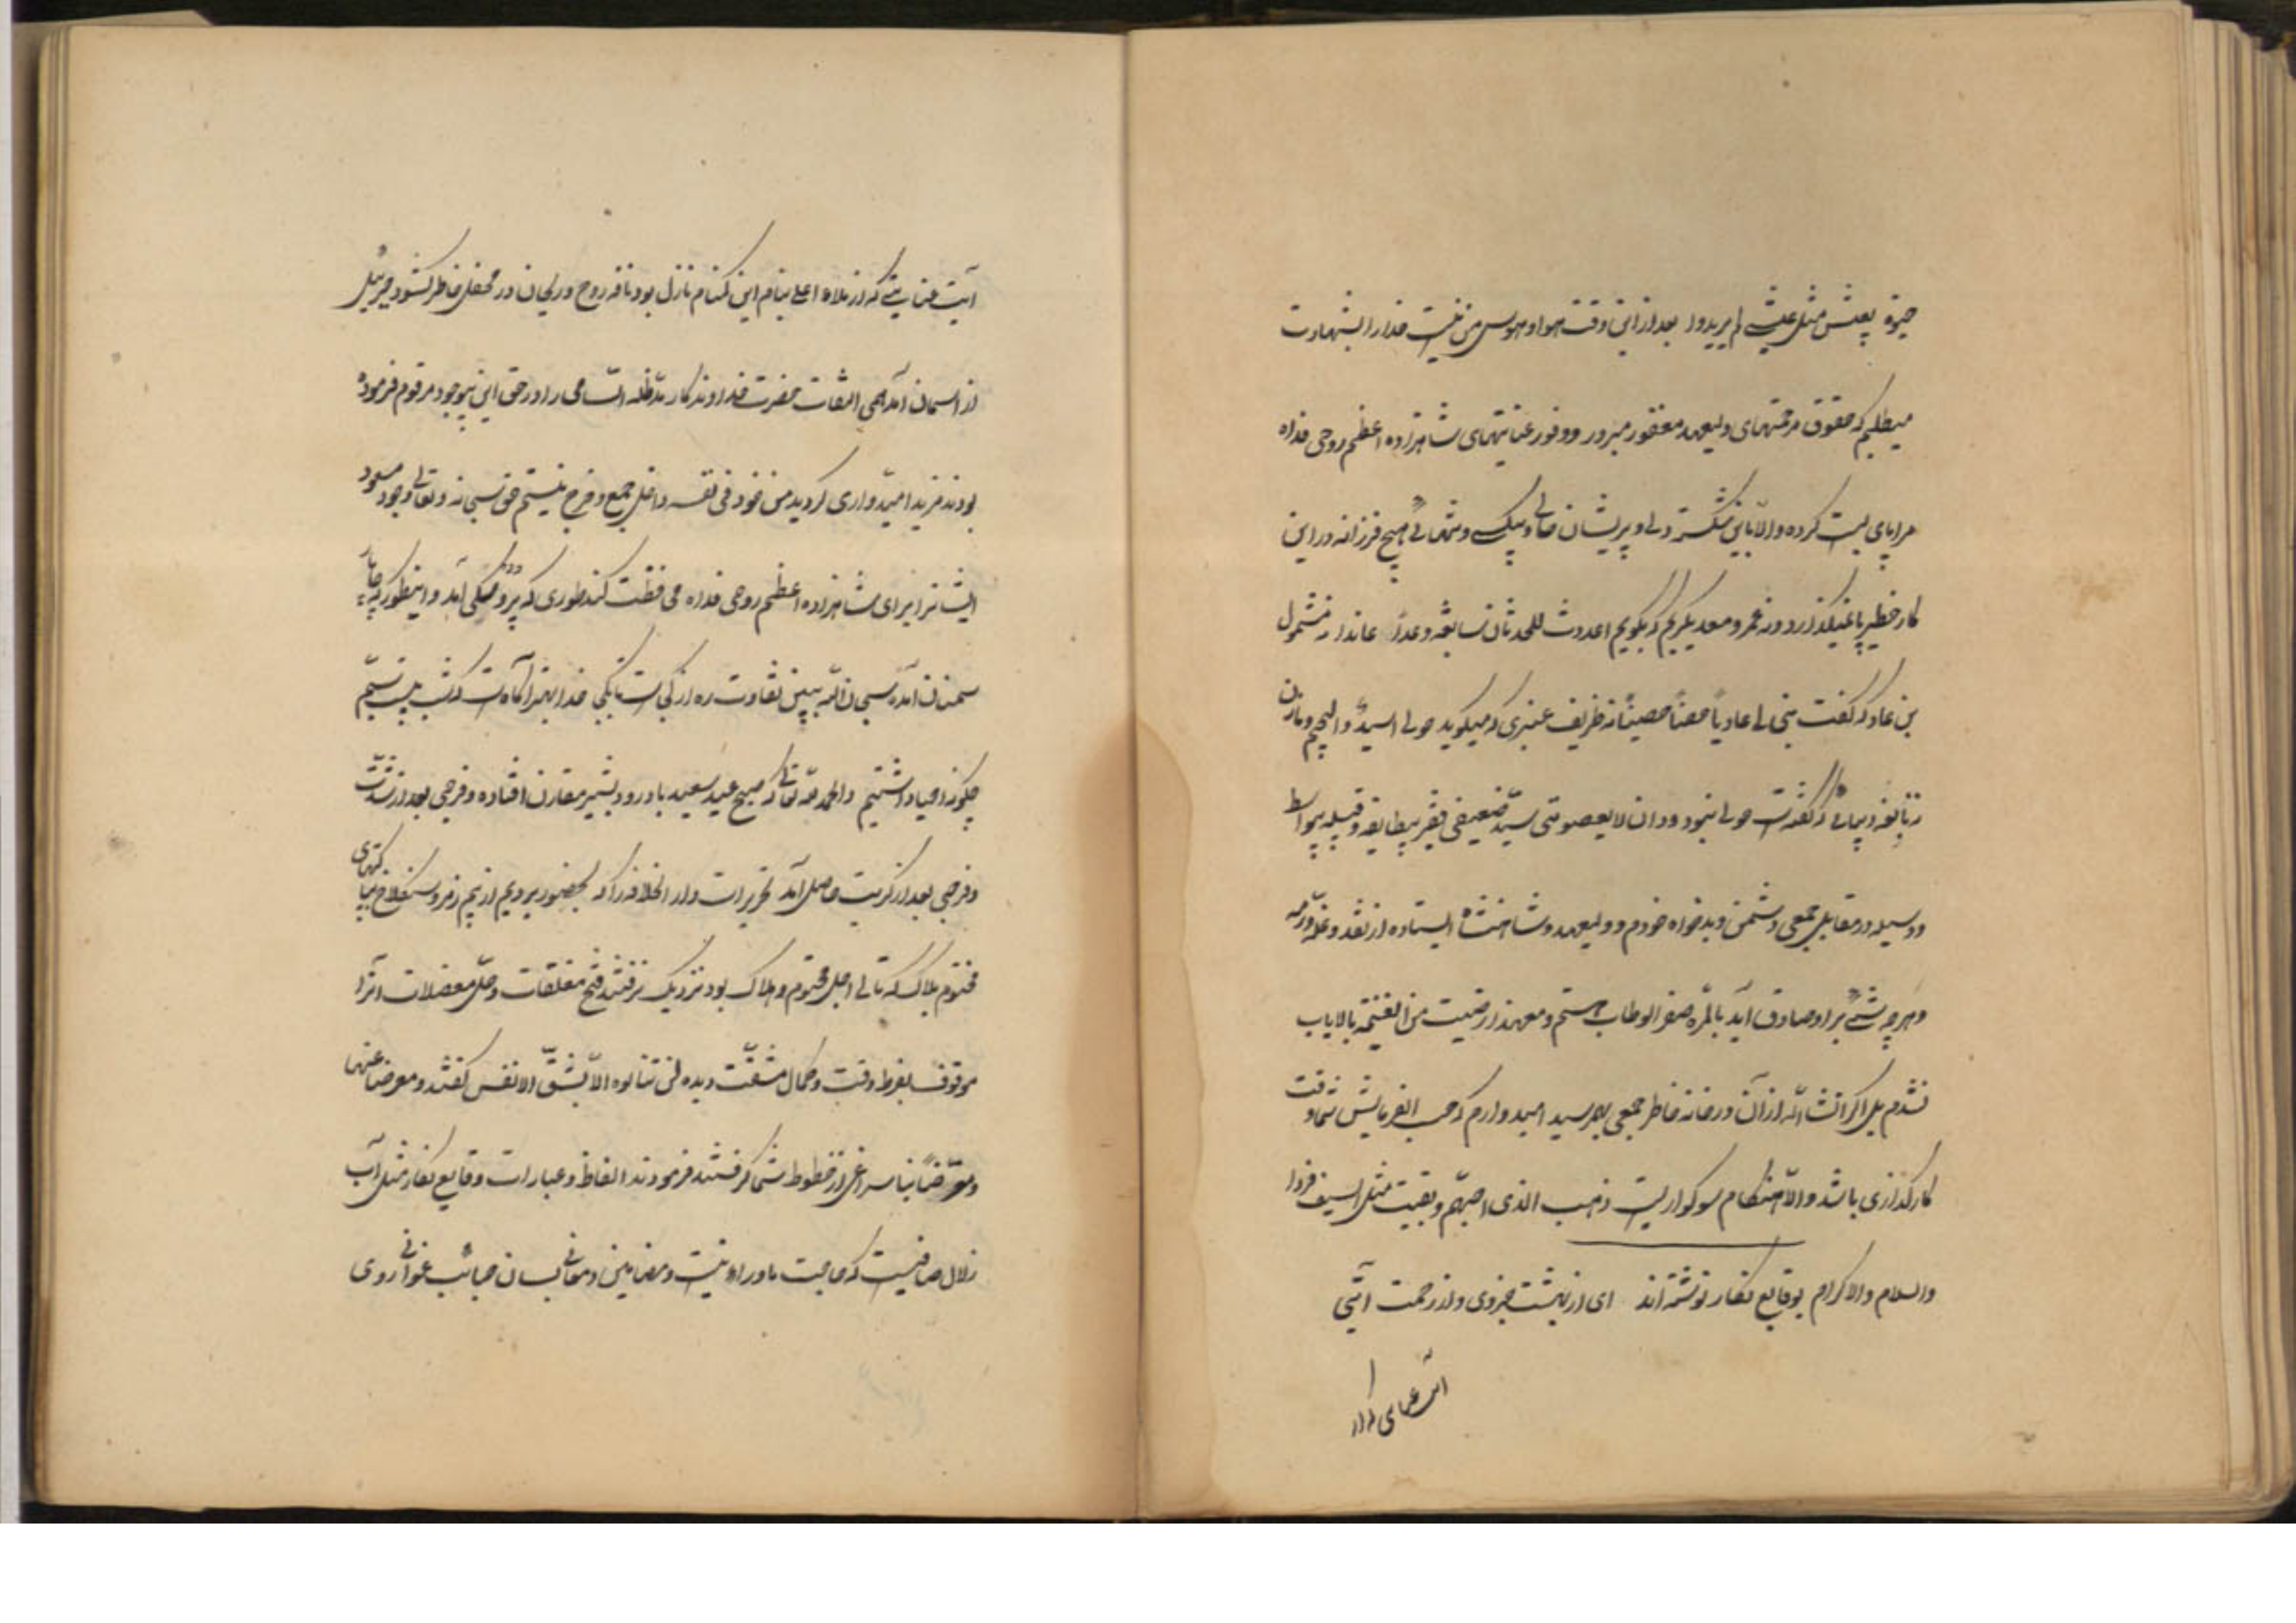 حیوة یعش مثل عیشی لم یرید وا بعد از این وقت هوا و هوس من نیست خدا را بشهادت
میطلبم که حقوق مرحمتهای ولیعهد مغفور مبرور و وفور عنایتهای شاهزاده اعظم روحی فداه
مرا پای بست کرده والا باین شکسته دلی و پریشان حالی و بیکسی و تنهائی هیچ فرزانه در این
کار خطیر پا نمیگذارد نه عمرو معدیکربم که بگویم اعددت للحدثان سابغة و عداءً علندا نه سموئل
بن عاد که گفت بنی لی عادیا حصناً حصیناً نه ظریف عنبری که میگوید حولی اسید والهجیم و مازن
نه نابغه ذبیانی که گفت حولی بنو دودان لا یعصوننی سید ضعیفی فقیر بیطایفه و قبیله بیواسطه
و وسیله در مقابل جمعی دشمن و بدخواه خودم و ولیعهد و شاهنشاه ایستاده از نقد و غله و رمه
و هرچه شیئی بر او صادق آید بالمره صفر الوطاب هستم و معهذا رضیت من الغنیمه بالایاب
نشدم بل اگر انشاءالله از آن درخانه خاطر جمعی بهم رسید امیدوارم که حسب الفرمایش شما وقت
کارگذاری باشد والا هنگام سوگواریست ذهب الذی احبهم و بقیت مثل السیف فردا
والسلام والاکرام بوقایع نگار نوشته‌اند ای از بهشت جزوی و از رحمت آیتی
آیت عنایتی که از ملاء اعلی بنام این گمنام نازل بود نافه روح و ریحان در محفل خاطر گشود جبرئیل
از آسمان آمد همی التفات حضرت خداوندگار مدظله السامی را در حق این بیوجود مرقوم فرموده
بودند مزید امیدواری گردید من خود فی نفسه داخل جمع و خرج نیستم حق سبحانه و تعالی وجود مسعود
ایشانرا برای شاهزاده اعظم روحی فداه محافظت کند طوری که پرو مکی آمد و اینطور که چاپار
سمنان آمده سبحان الله ببین تفاوت ره از کجاست تا بکجا خدا بهتر آگاه است که شب عید نسیم
چگونه احیا داشتیم والحمدلله تعالی که صبح عید سعید با ورود بشیر مقارن افتاده و فرجی بعد از شدت
و فرحی بعد از کربت حاصل آمد تحریرات دارالخلافه را که بحضور بردیم از بیم رمز و سنگلاخ بیانتهای
مختوم بلاک که تالی اجل محتوم و هلاک بود نزدیک نرفتند فتح مغلقات و حل معضلات آنرا
موقوف بفرط دقت و کمال مشقت دیده لن تنالوه الا بشق الانفس گفتند و معرضاً عنها
و متعرضاً بنا سراغی از خطوط شما گرفتند فرمودند الفاظ و عبارات وقایع نگار مثل آب
زلال صافیست که حاجت ماوراء نیست و مضامین و معانی بسان حبائب غوانی روی